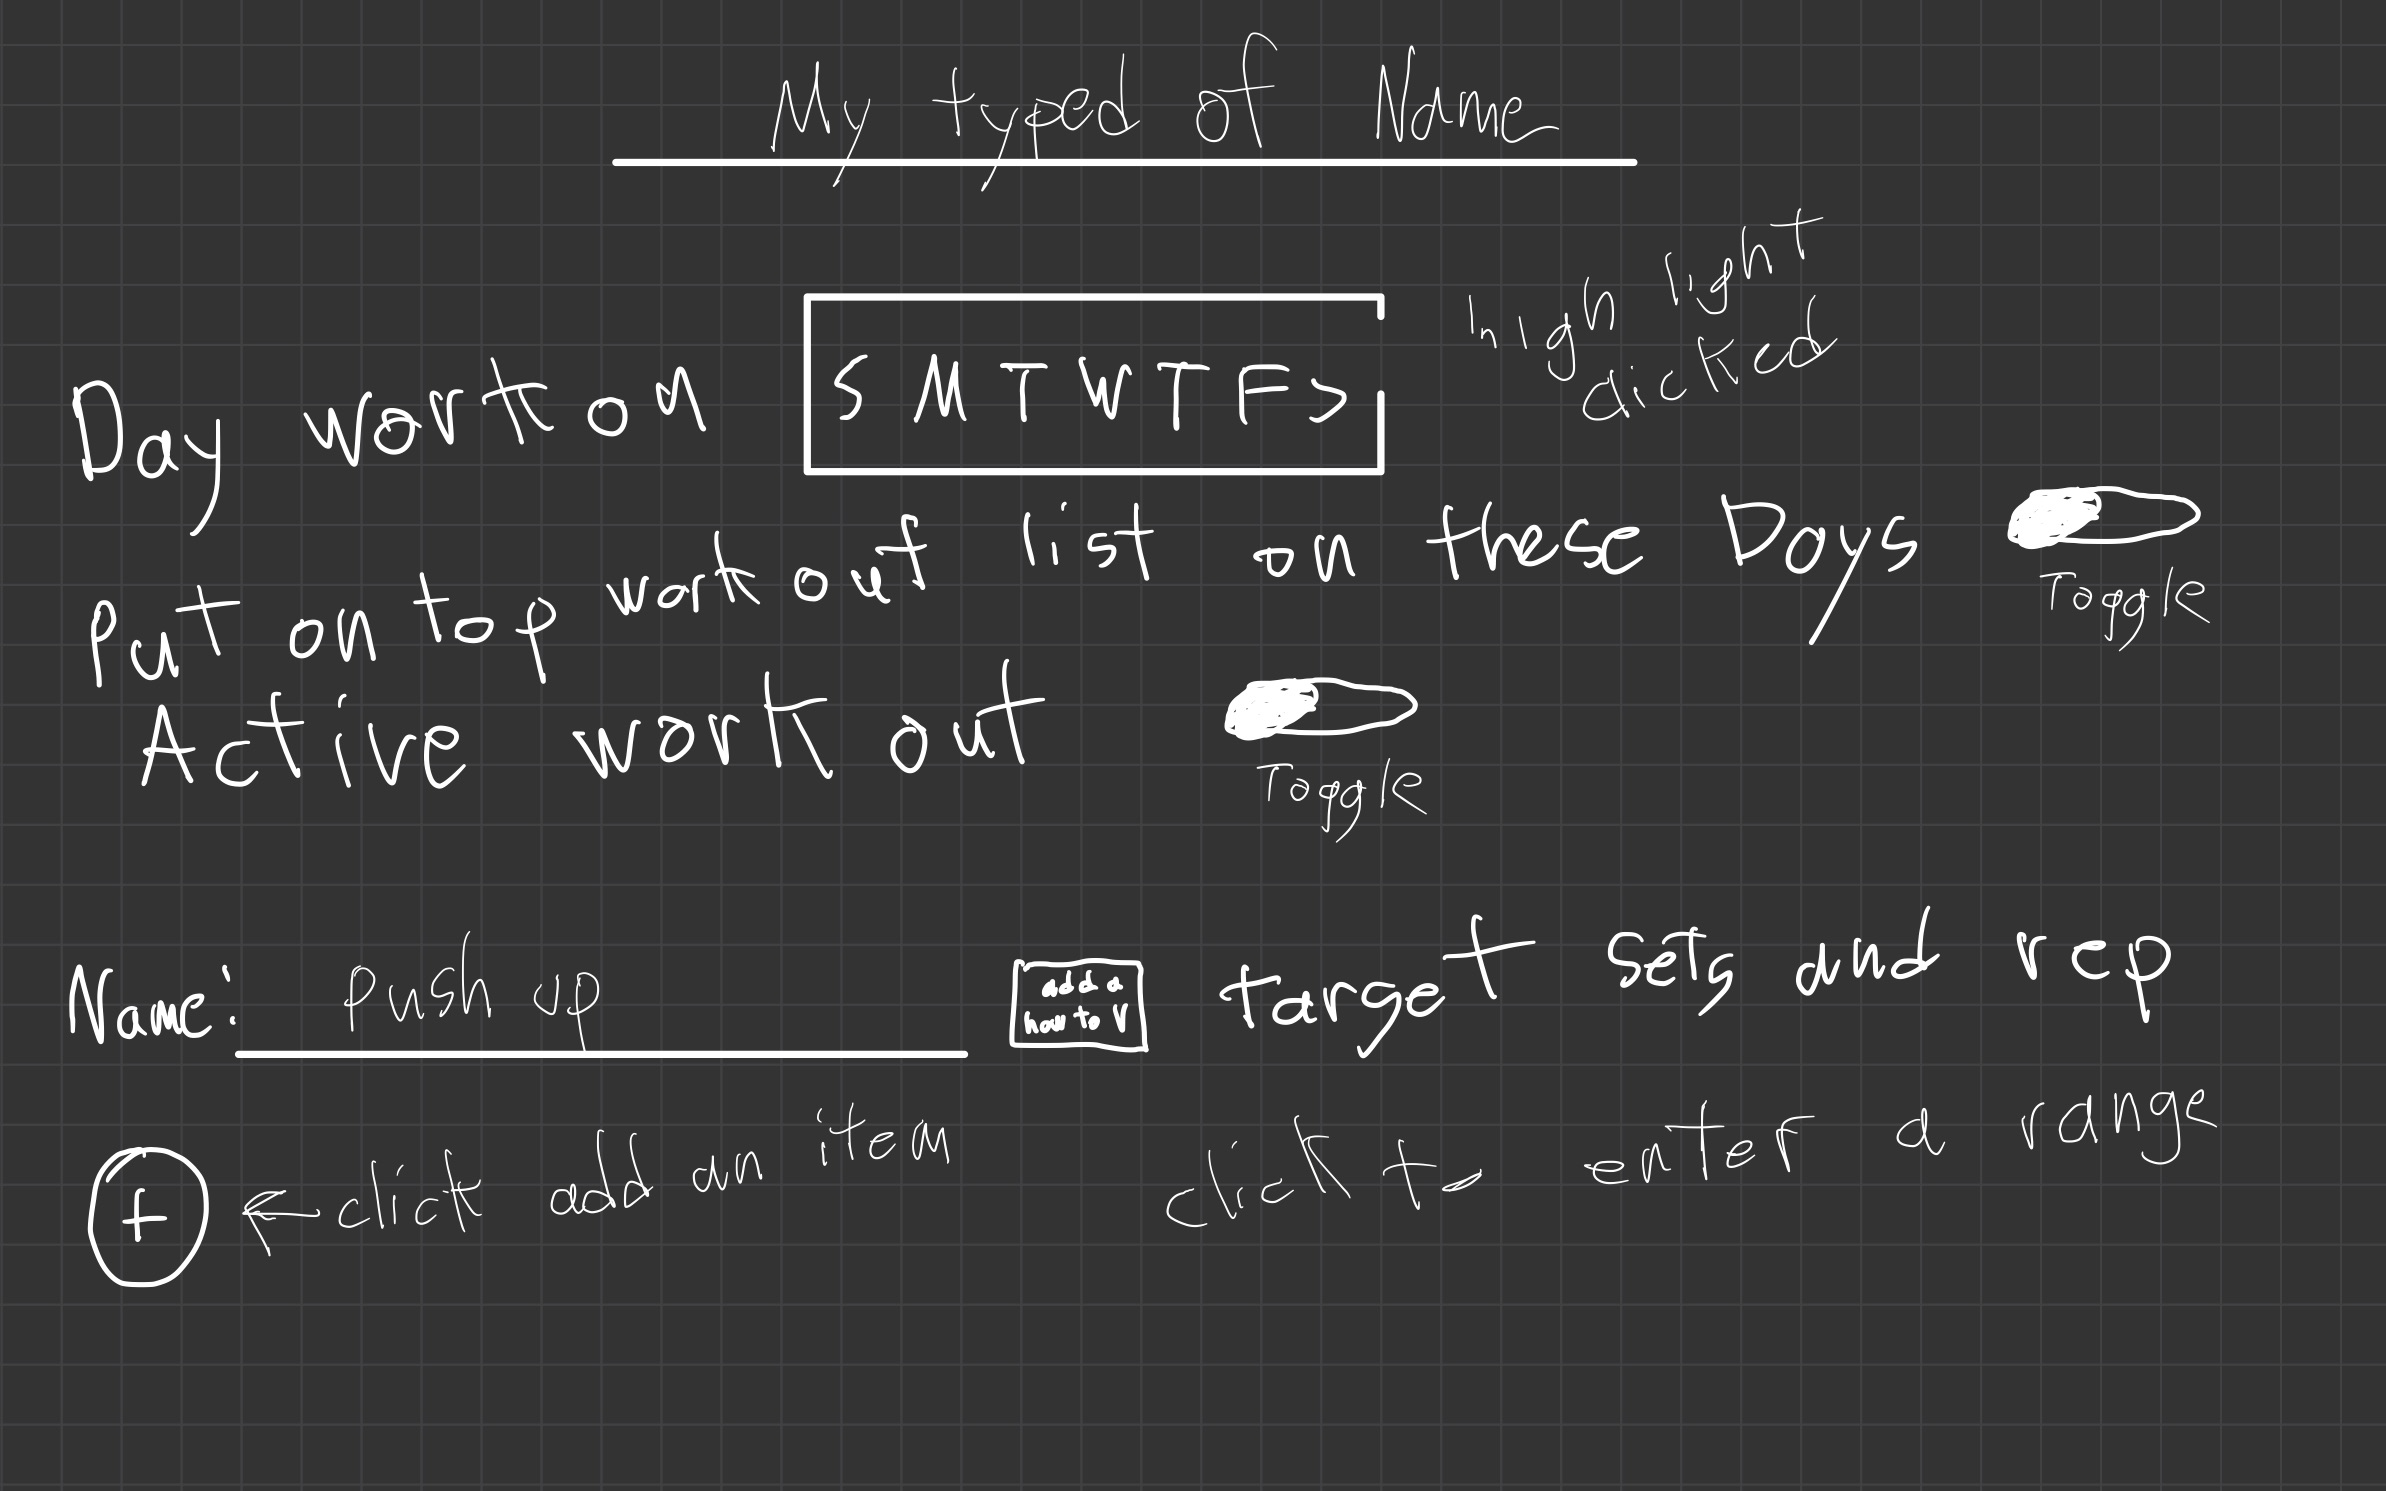 My typed of Name
high light
clicked
Day work on S M T W T F S
Put on top work out list on these Days
Toggle
Active work out
Toggle
Name: push up
add a
how to V
target sets and rep
+ ← click add an item
click to enter a range